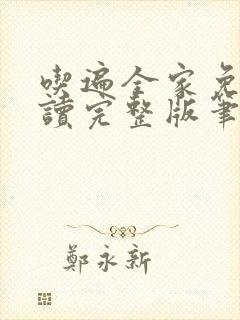 喫遍全家免
讀完整版筆
鄭永新